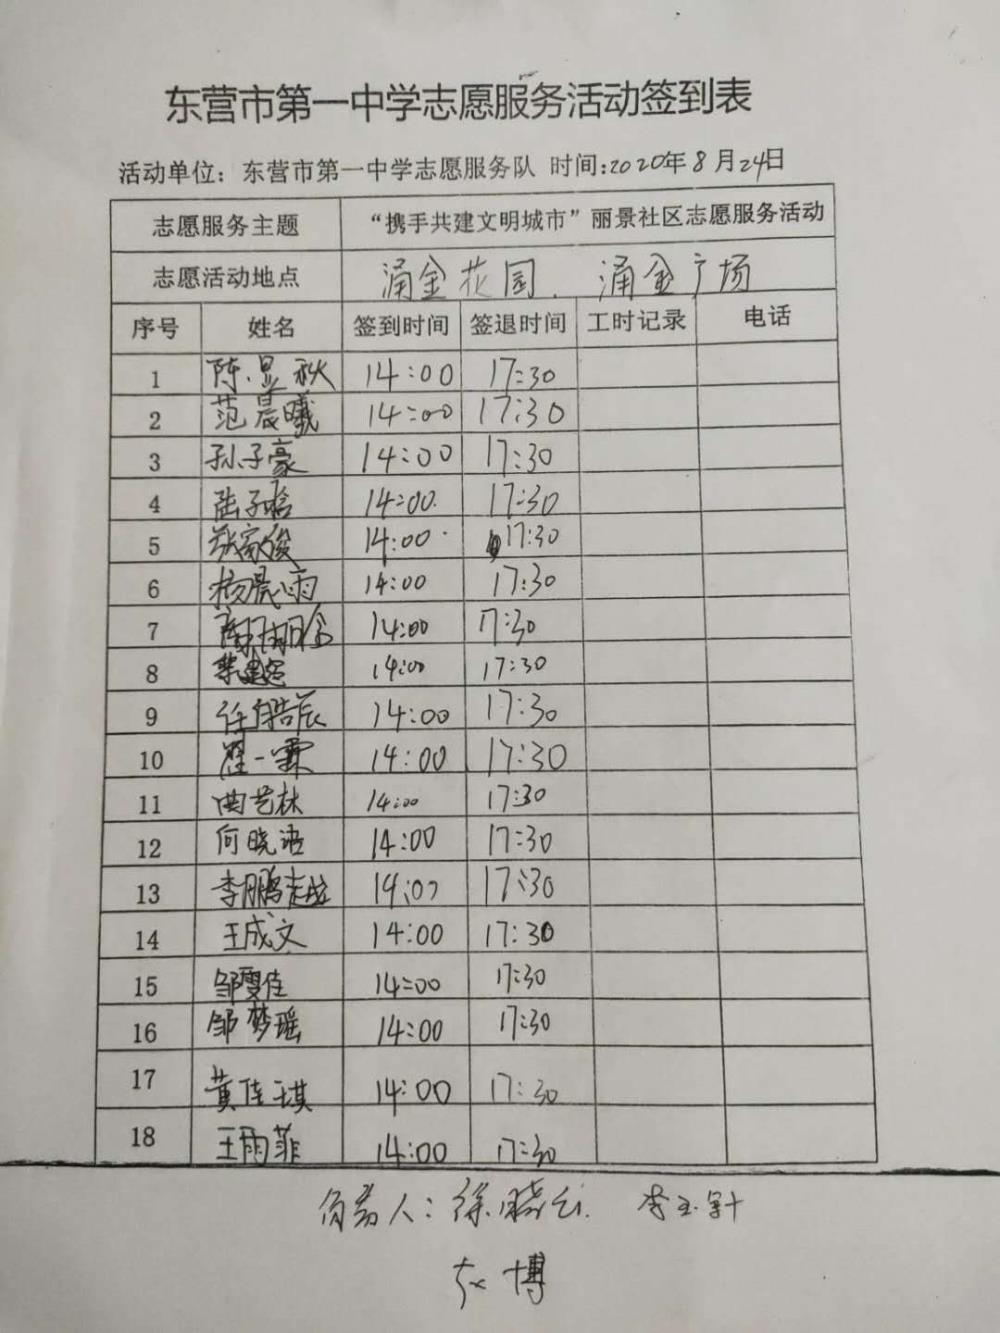 东营市第一中学志愿服务活动签到表
活动单位：东营市第一中学志愿服务队 时间:2020年8月24日
志愿服务主题 “携手共建文明城市”丽景社区志愿服务活动
志愿活动地点 涌金花园、涌金广场
序号 姓名 签到时间 签退时间 工时记录 电话
1 陈昱秋 14:00 17:30
2 范晨曦 14:00 17:30
3 孙子豪 14:00 17:30
4 陆子晗 14:00 17:30
5 张家俊 14:00 17:30
6 杨晨雨 14:00 17:30
7 14:00 17:30
8 14:00 17:30
9 任浩辰 14:00 17:30
10 一霖 14:00 17:30
11 曲艺林 14:00 17:30
12 何晓语 14:00 17:30
13 李鹏越 14:00 17:30
14 王成文 14:00 17:30
15 邹雯佳 14:00 17:30
16 邹梦瑶 14:00 17:30
17 黄佳琪 14:00 17:30
18 王雨菲 14:00 17:30
负责人：徐晓 李玉
博